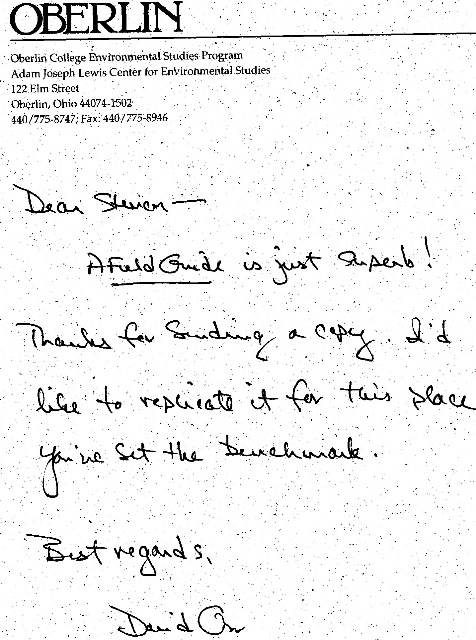 OBERLIN
Oberlin College Environmental Studies Program
Adam Joseph Lewis Center for Environmental Studies
122 Elm Street
Oberlin, Ohio 44074-1502
440/775-8747; Fax: 440/775-8946
Dear Steven—
A Field Guide is just superb!
Thanks for sending a copy. I'd
like to replicate it for this place
You've set the benchmark.
Best regards,
David Orr